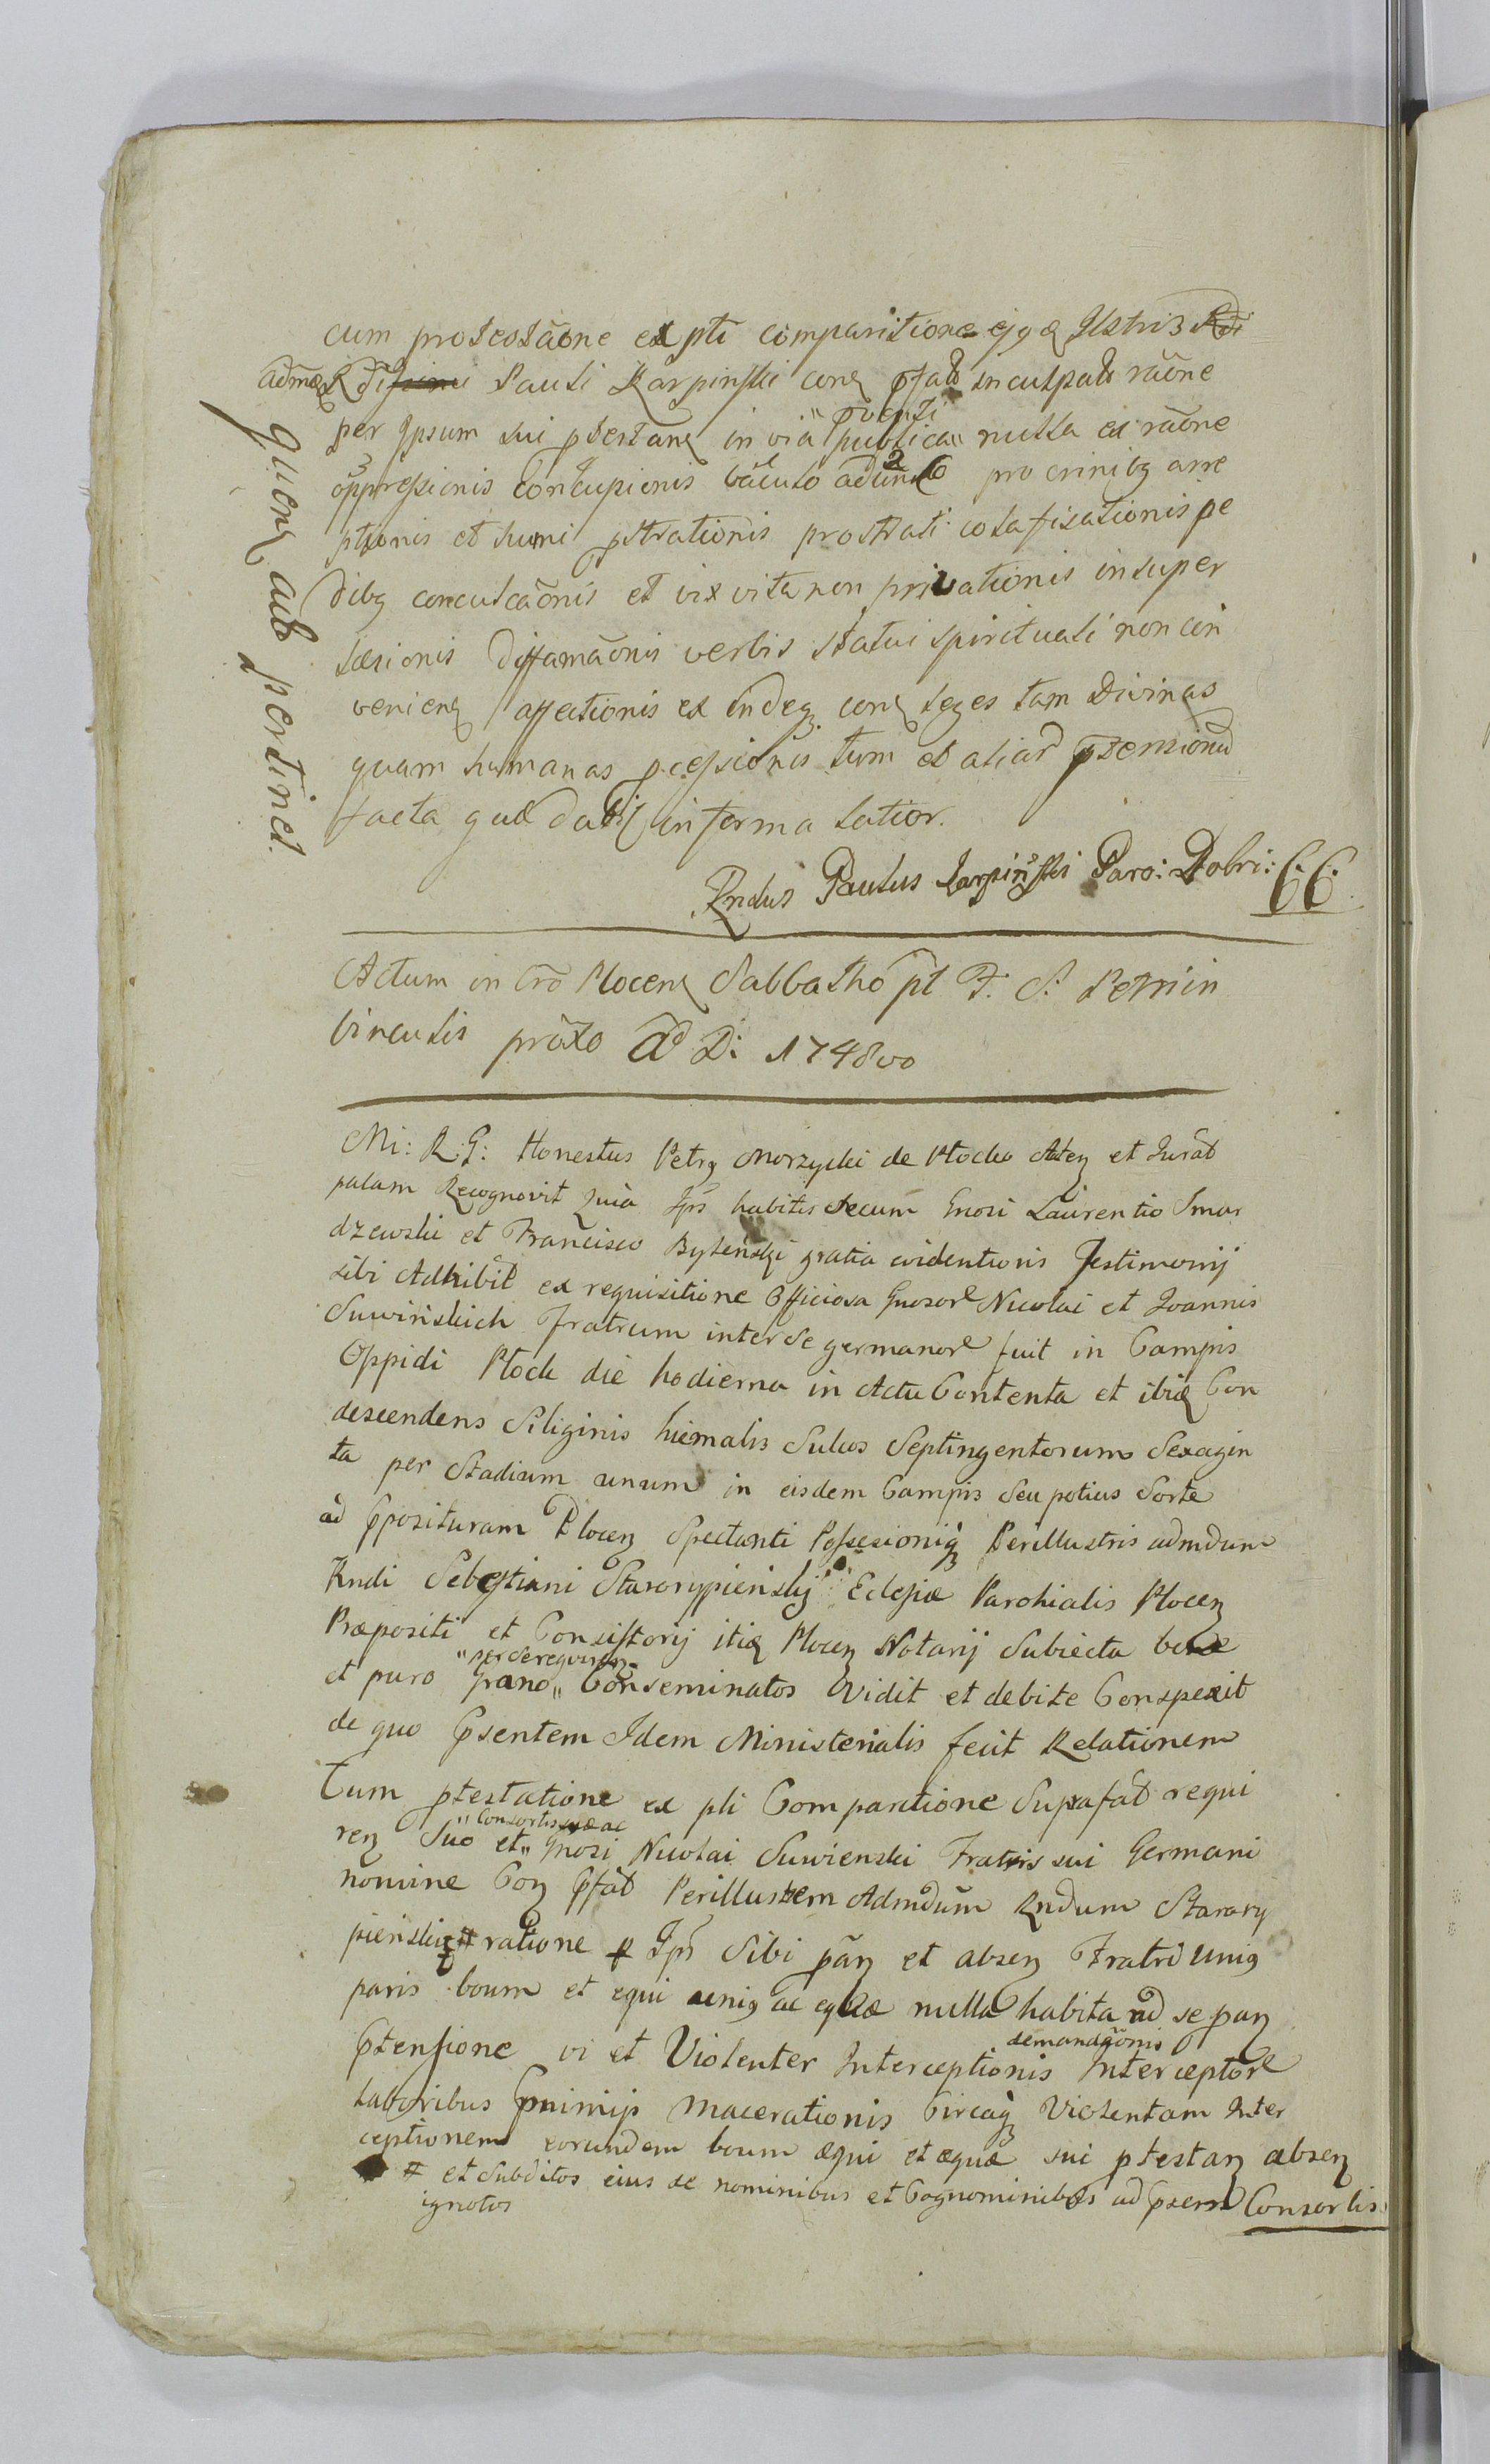 cum protestãone ex pti comparitione ejqȝ Illstris Rdi
admȝ Rdi Pauli Karpinski conȝ pfato inculpato rãone
per Ipsum sui ptestanȝ in via " pventi publica " nulla ei rãone
oppressionis concussionis baculo adunco pro crinibȝ arre
ptionis et humi pstrationis prostrati colafisationis pe
dibȝ conculcãonis et vix vita non privationis insuper
læsionis diffamãonis verbis statui spirituali non con
venienȝ affectionis et indeqȝ conȝ leges tam Divinas
quam humanas pcessionis tum et aliar ptensionũ
facta quæ dabit in forma latior.
Quenȝ aub pertinet.
Rndus Paulus Karpiński Paro: Dobri: CC.
Actum in Cro Plocenȝ Sabbatho pt F. S. Petri in
Vinculis prõxo Aõ D: 1748vo
Mi: R. G: Honestus Petrȝ Morzycki de Plocko Autenȝ et Jurat
palam Recognovit Quia Ips habitis secum Gnosi Laurentio Smar
dzewski et Francisco Byleński gratia evidentioris Testimonij
sibi Adhibit ex requisitione Officiosa Gnosor Nicolai et Joannis
Suwińskich Fratrum inter se germanor fuit in Campis
Oppidi Plock die hodierna in Actu Contenta et ibiȝ Con
descendens Siliginis hiemalis Sulcos Septingentorum Sexagin
ta per Stadium unum in eisdem Campis Seu potius Sorte
ad Pposituram Plocenȝ Spectanti Possesioniqȝ Perillustris admdum
Rndi Sebastiani Starorypienskij Eclesiæ Parohialis Plocenȝ
Præpositi et Consistorij itiȝ Plocenȝ Notarij Subiecta bene
et puro Grano " per se requirenȝ " Conseminatos Vidit et debite Conspexit
de quo Psentem Idem Ministerialis fecit Relationem
Cum ptestatione ex pti Comparitione Suprafat requi
renȝ Suo et " Consortis suæ ac " Gnosi Nicolai Suwienski Fratris sui Germani
nomine Conȝ Pfat Perillustrem Admdum Rndum Starory
pienski # ratione Ips Sibi pãnȝ et absenȝ Fratri Uniȝ
paris boum et equi uniȝ ac equæ nulla habita ad se panȝ
Ptensione vi et Violenter Interceptionis demandãonis Interceptor
laboribus Pnimijs macerationis Circaqȝ Violentam Inter
ceptionem eorundem boum æqui et æquæ sui ptestanȝ absenȝ
# et Subditos eius de nominibus et Cognominibus ad Psens
ignotos
Consortis